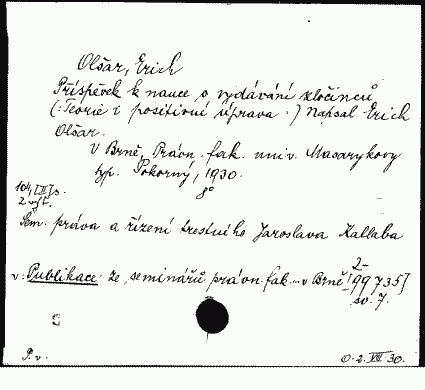 Olšar, Erich
Příspěvek k nauce o vydávání zločinců
(: Teorie i positivní úprava :) Napsal Erich
Olšar.
V Brně, Právn. fak. univ. Masarykovy
typ. Pokorný, 1930.
104, [II] s. 8°
2 výt.
Sem. práva a řízení trestního Jaroslava Kallaba
2-
v: Publikace ze seminářů právn. fak... v Brně [99735]
sv. 7.
P. v. O. 2. VIII. 30.